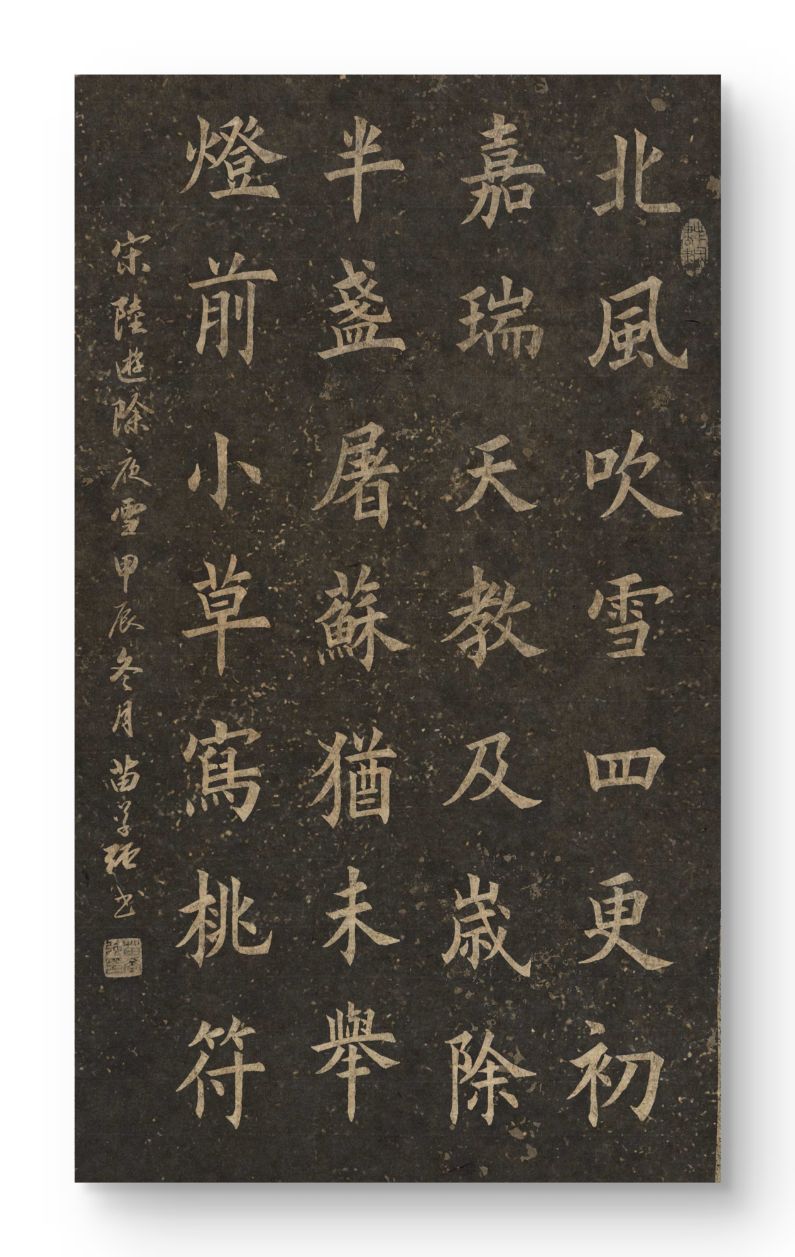 北風吹雪四更初
嘉瑞天教及歳除
半盞屠蘇猶未舉
燈前小草寫桃符
宋陸遊除夜雪甲辰冬月苗學碩書